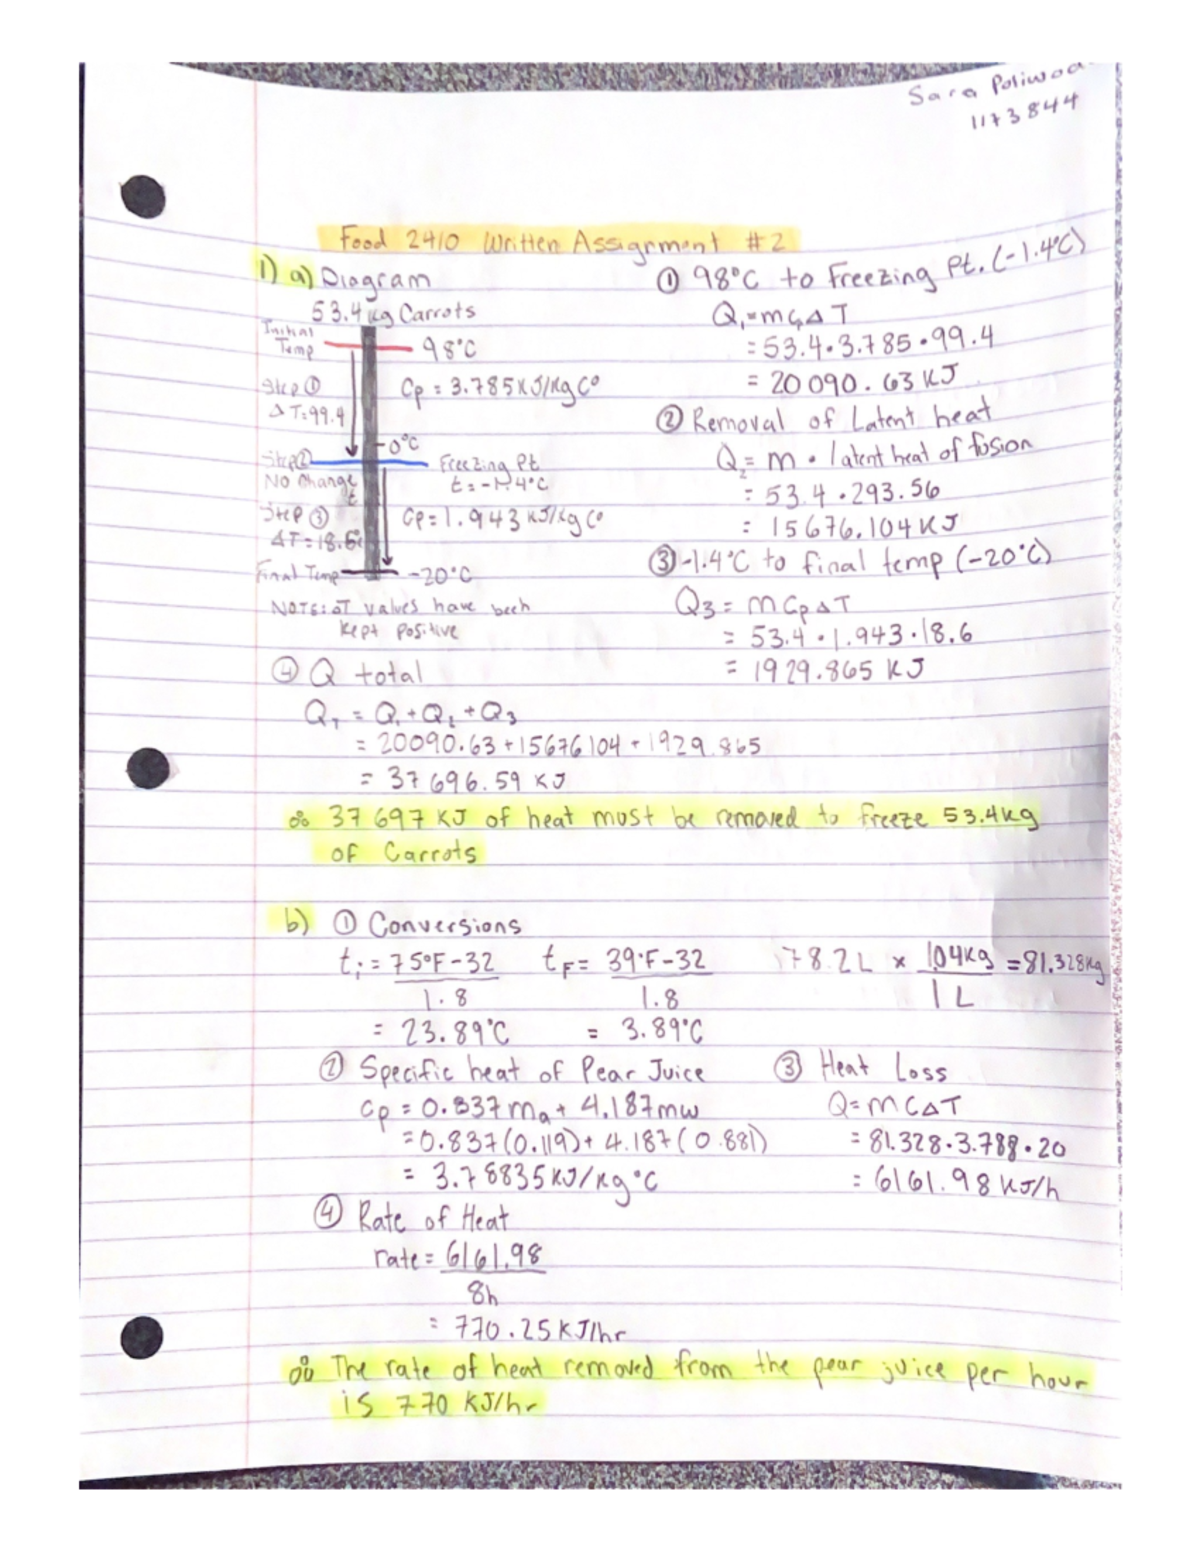 Sara Poliwoda
1173844
Food 2410 Written Assignment #2
1) a) Diagram
53.4 kg Carrots
Initial
Temp
98°C
Step ①
ΔT=99.4
Cp = 3.785KJ/Kg C°
0°C
Step②
Freezing Pt
No Change
t
t = -1.4°C
Step ③
Cp=1.943 KJ/kg C°
ΔT=18.6
Final Temp
-20°C
NOTE: ΔT values have been
Kept Positive
① 98°C to Freezing Pt. (-1.4°C)
Q₁=mCpΔT
= 53.4•3.785•99.4
= 20090.63 KJ
② Removal of Latent heat
Q₂= m • latent heat of fusion
= 53.4 •293.56
= 15676.104 KJ
③ -1.4°C to final temp (-20°C)
Q3 = mCpΔT
= 53.4 •1.943•18.6
= 1929.865 KJ
④ Q total
Q_T = Q₁+Q₂+Q3
= 20090.63+15676104+1929.865
= 37 696.59 KJ
∴ 37 697 KJ of heat must be removed to freeze 53.4kg
of Carrots
b) ① Conversions
ti = 75°F-32
1.8
= 23.89°C
tF = 39°F-32
1.8
= 3.89°C
78.2L × 1.04Kg = 81.328Kg
1 L
② Specific heat of Pear Juice
Cp = 0.837ma + 4.187mw
=0.837(0.119)+ 4.187(0.881)
= 3.78835KJ/Kg°C
③ Heat Loss
Q=mCΔT
= 81.328•3.788•20
= 6161.98 KJ/h
④ Rate of Heat
rate = 6161.98
8h
= 770.25KJ/hr
∴ The rate of heat removed from the pear juice per hour
is 770 KJ/hr